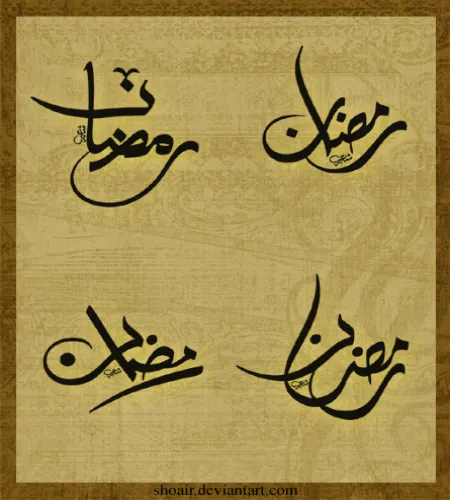 رمضان
رمضان
رمضان
رمضان
shoair.deviantart.com